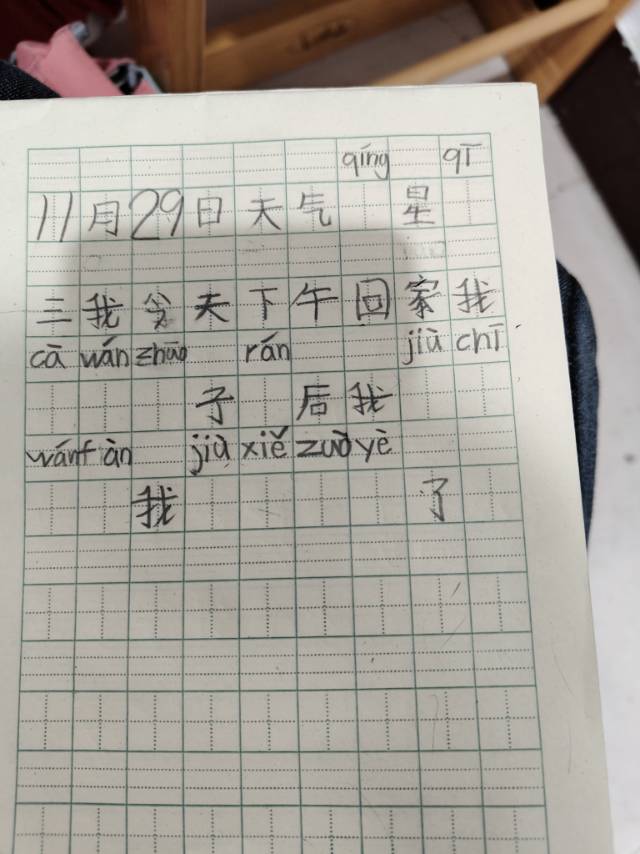 qíng qī
11月29日天气 星
三我今天下午回家我
cā wán zhuō rán jiù chī
子 后我
wánfàn jiù xiě zuò yè
我 了